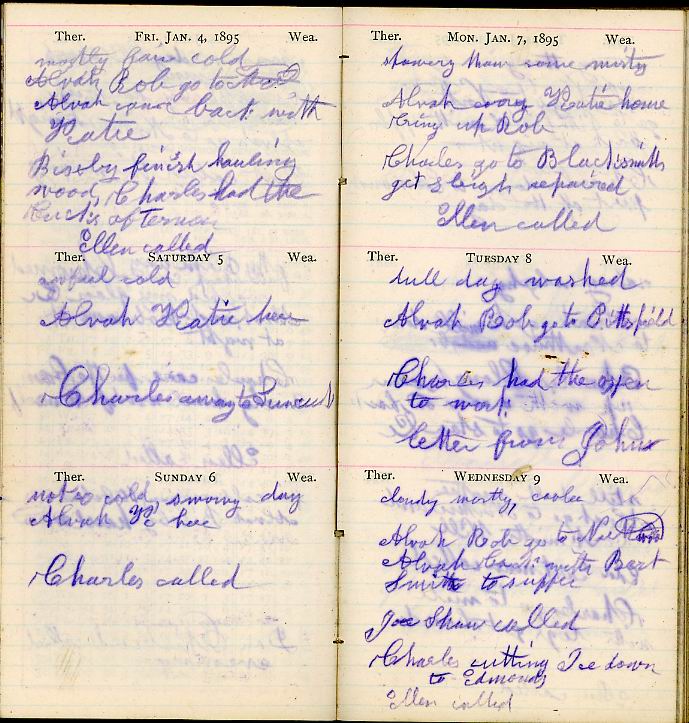 Ther. FRI. JAN. 4, 1895 Wea.
mostly fair cold
Alvah Rob go to
Alvah came back with
Katie
Bixby finish hauling
wood, Charles had the
afternoon
Ellen called
Ther. SATURDAY 5 Wea.
awful cold
Alvah Katie here
Charles away to
Ther. SUNDAY 6 Wea.
not so cold, snowy day
Alvah K here
Charles called
Ther. MON. JAN. 7, 1895 Wea.
showery thaw some misty
Alvah carry Katie home
bring up Rob
Charles go to Blacksmiths
get sleigh repaired
Ellen called
Ther. TUESDAY 8 Wea.
dull day washed
Alvah Rob go to Pittsfield
Charles had the oxen
to work
letter from John
Ther. WEDNESDAY 9 Wea.
cloudy mostly, cooler
Alvah Rob go to
Alvah with Bert
Smith to supper
Joe Shaw called
Charles cutting Ice down
to Edmonds
Ellen called